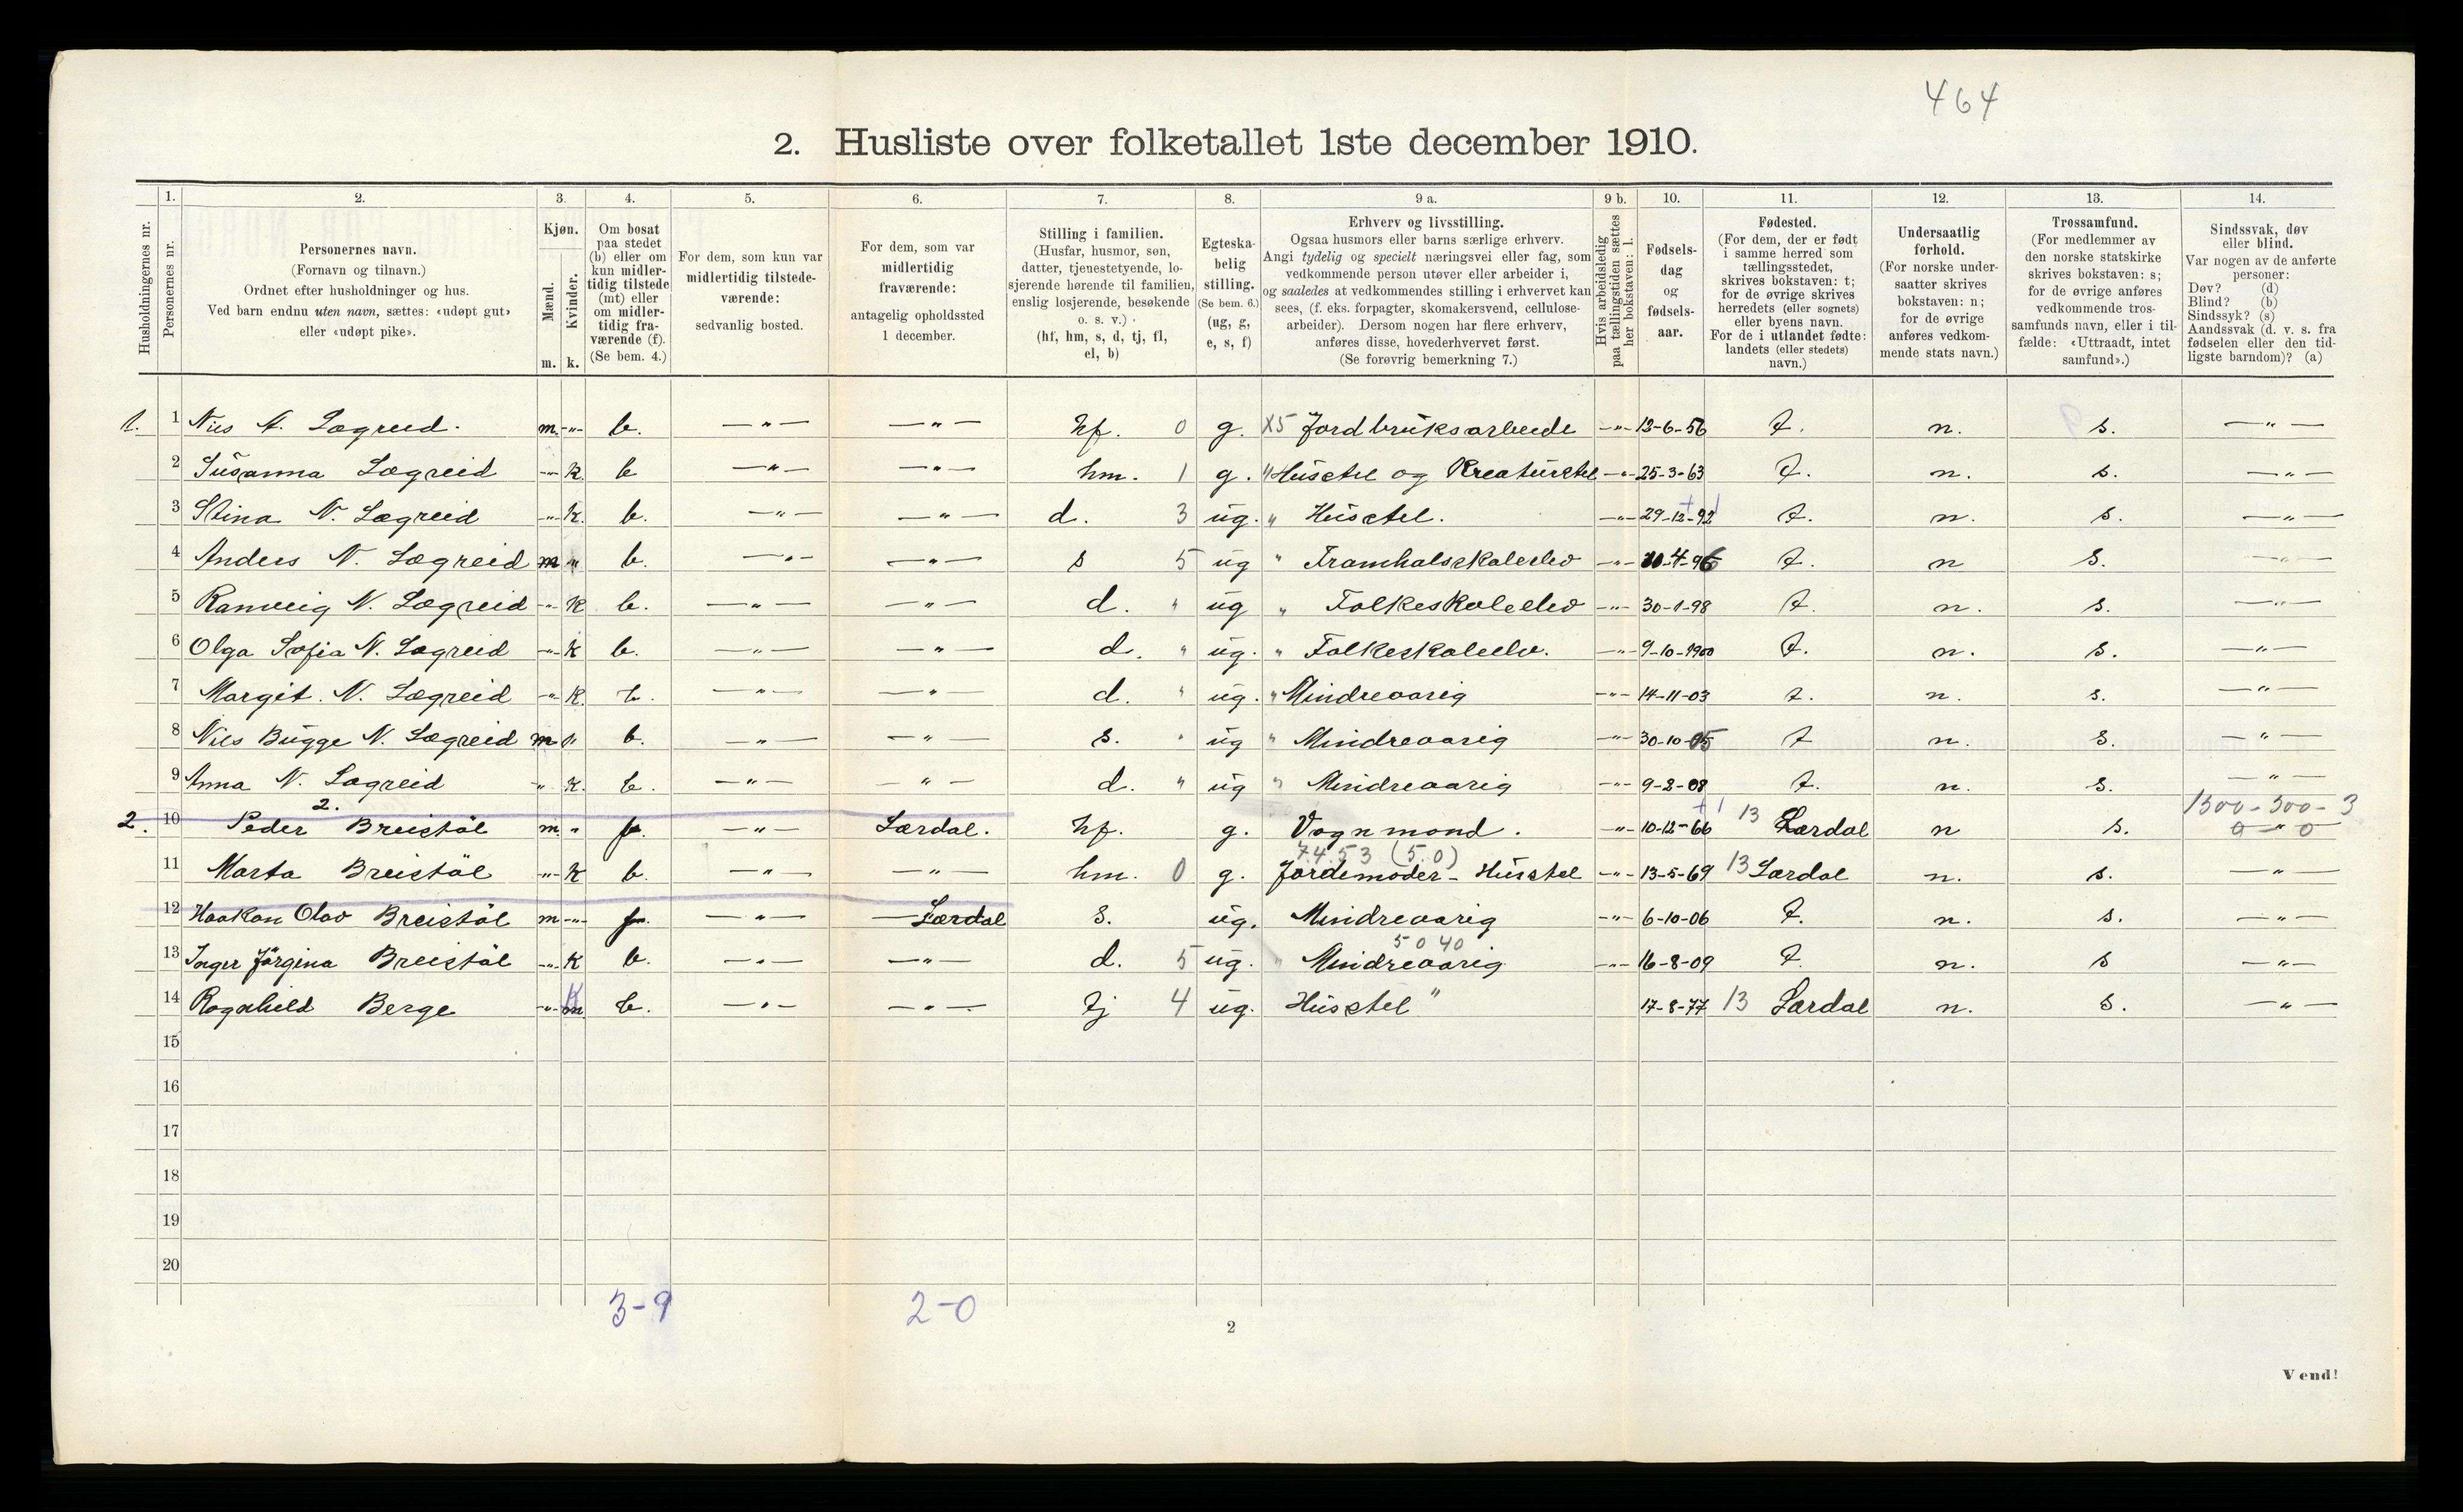 464
2. Husliste over folketallet 1ste december 1910.
Husholdningernes nr.
1.
Personernes nr.
2.
Personernes navn.
(Fornavn og tilnavn.)
Ordnet efter husholdninger og hus.
Ved barn endnu uten navn, sættes: «udøpt gut»
eller «udøpt pike».
3.
Kjøn.
Mænd.
Kvinder.
m. k.
4.
Om bosat
paa stedet
(b) eller om
kun midler-
tidig tilstede
(mt) eller
om midler-
tidig fra-
værende (f).
(Se bem. 4.)
5.
For dem, som kun var
midlertidig tilstede-
værende:
sedvanlig bosted.
6.
For dem, som var
midlertidig
fraværende:
antagelig opholdssted
1 december.
7.
Stilling i familien.
(Husfar, husmor, søn,
datter, tjenestetyende, lo-
sjerende hørende til familien,
enslig losjerende, besøkende
o. s. v.)
(hf, hm, s, d, tj, fl,
el, b)
8.
Egteska-
belig
stilling.
(Se bem. 6.)
(ug, g,
e, s, f)
9 a.
Erhverv og livsstilling.
Ogsaa husmors eller barns særlige erhverv.
Angi tydelig og specielt næringsvei eller fag, som
vedkommende person utøver eller arbeider i,
og saaledes at vedkommendes stilling i erhvervet kan
sees, (f. eks. forpagter, skomakersvend, cellulose-
arbeider). Dersom nogen har flere erhverv,
anføres disse, hovederhvervet først.
(Se forøvrig bemerkning 7.)
9 b.
Hvis arbeidsledig
paa tællingstiden sættes
her bokstaven: l.
10.
Fødsels-
dag
og
fødsels-
aar.
11.
Fødested.
(For dem, der er født
i samme herred som
tællingsstedet,
skrives bokstaven: t;
for de øvrige skrives
herredets (eller sognets)
eller byens navn.
For de i utlandet fødte:
landets (eller stedets)
navn.)
12.
Undersaatlig
forhold.
(For norske under-
saatter skrives
bokstaven: n;
for de øvrige
anføres vedkom-
mende stats navn.)
13.
Trossamfund.
(For medlemmer av
den norske statskirke
skrives bokstaven: s;
for de øvrige anføres
vedkommende tros-
samfunds navn, eller i til-
fælde: «Uttraadt, intet
samfund».)
14.
Sindssvak, døv
eller blind.
Var nogen av de anførte
personer:
Døv? (d)
Blind? (b)
Sindssyk? (s)
Aandssvak (d. v. s. fra
fødselen eller den tid-
ligste barndom)? (a)
1. 1 Nils A. Lægreid. m. -"- b. —"— —"— hf. 0 g. X5 Jordbruksarbeide -"- 12-6-56 t. n. s. —"—
2 Susanna Lægreid -"- k. b —"— —"— hm. 1 g. " Husstel og Kreaturstel -"- 25-3-63 t. n. s. —"—
3 Stina N. Lægreid -"- k. b. —"— —"— d. 3 ug. " Husstel. -"- 29-12-92 t. n. s. —"—
4 Anders N. Lægreid m " b. —"— —"— s 5 ug " Framhalsskolelev -"- 10-4-96 t. n s. —"—
5 Ranveig N. Lægreid -"- k b. —"— —"— d. " ug " Folkeskoleelev -"- 30-1-98 t. n. s. —"—
6 Olga Sofia N. Lægreid -"- k b. —"— —"— d. " ug. " Folkeskoleelv. -"- 9-10-1900 t. n. s. —"—
7 Margit. N. Lægreid -"- k. b. —"— —"— d. " ug. " Mindreaarig -"- 14-11-03 t. n. s. —"—
8 Nils Bugge N. Lægreid m " b. —"— —"— s. " ug " Mindreaarig -"- 30-10-05 t n. s. —"—
9 Anna N. Lægreid " k. b. —"— —"— d. " ug " Mindreaarig -"- 9-2-08 t. n. s. —"—
2.
1500-500-3
2. 10 Peder Breistøl m " f. —"— Lærdal. hf. g. Vognmand. -"- 10-12-66 13 Lærdal n s. 0 " 0
74.53 (5.0)
11 Marta Breistøl -"- k b. —"— —"— hm. 0 g. Jordemoder - Husstel -"- 13-5-69 13 Lærdal n. s. —"—
12 Haakon Olav Breistøl m -"- f. —"— Lærdal s. ug. Mindreaarig -"- 6-10-06 t. n. s. —"—
5 0 40
13 Inger Jørgina Breistøl -"- k b. —"— —"— d. 5 ug. " Mindreaarig -"- 16-8-09 t. n. s —"—
14 Ragnhild Berge -"- k b. —"— —"— tj 4 ug. Husstel " 17-8-77 13 Lærdal n. s. —"—
15
16
17
18
19
20
3-9 2-0
2
Vend!